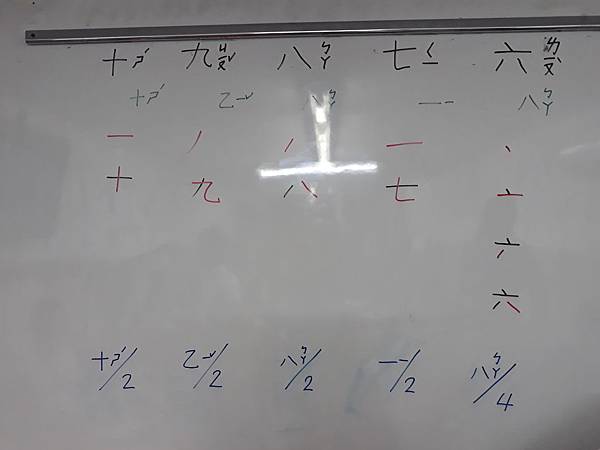 十ㄕˊ 九ㄐㄧㄡˇ 八ㄅㄚ 七ㄑㄧ 六ㄌㄧㄡˋ
十ㄕˊ 乙ㄧˇ 八ㄅㄚ 一ㄧ 八ㄅㄚ
一 丿 丿 一 丶
十 九 八 七 亠
六
十ㄕˊ/2 乙ㄧˇ/2 八ㄅㄚ/2 一ㄧ/2 八ㄅㄚ/4